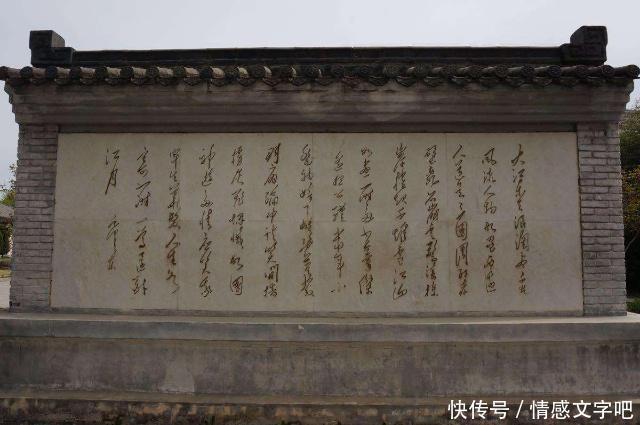 大江东去浪淘尽千古
风流人物故垒西边
人道是三国周郎赤
壁乱石
岸卷起千堆雪江山
如画一时多少豪杰
遥想公瑾当年小
乔初嫁了雄姿英发
羽扇纶巾谈笑间樯
橹灰飞烟灭故国
神游多情应笑我
早生华发人生如
一尊还酹
江月
快传号/情感文字吧